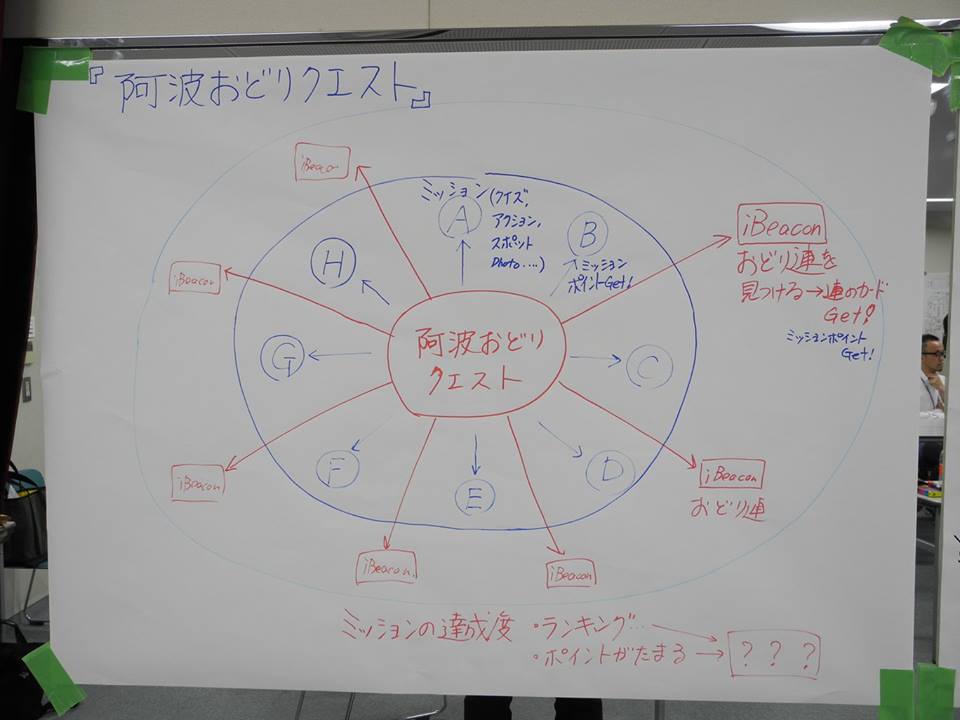 『阿波おどりクエスト』
iBeacon
ミッション(クイズ,
アクション,
スポット
Photo....)
A
B
ミッション
ポイントGet!
iBeacon
おどり連を
見つける→連のカード
Get!
ミッションポイント
Get!
H
iBeacon
G
阿波おどり
クエスト
C
iBeacon
F
E
D
iBeacon
おどり連
iBeacon
iBeacon
ミッションの達成度
・ランキング…
・ポイントがたまる→
? ? ?